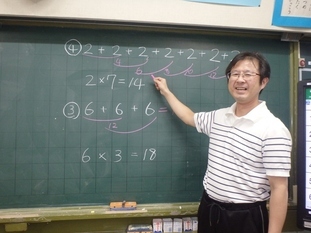 ④ 2 + 2 + 2 + 2 + 2 + 2 + 2
2 × 7 = 14
③ 6 + 6 + 6 =
12
6 × 3 = 18